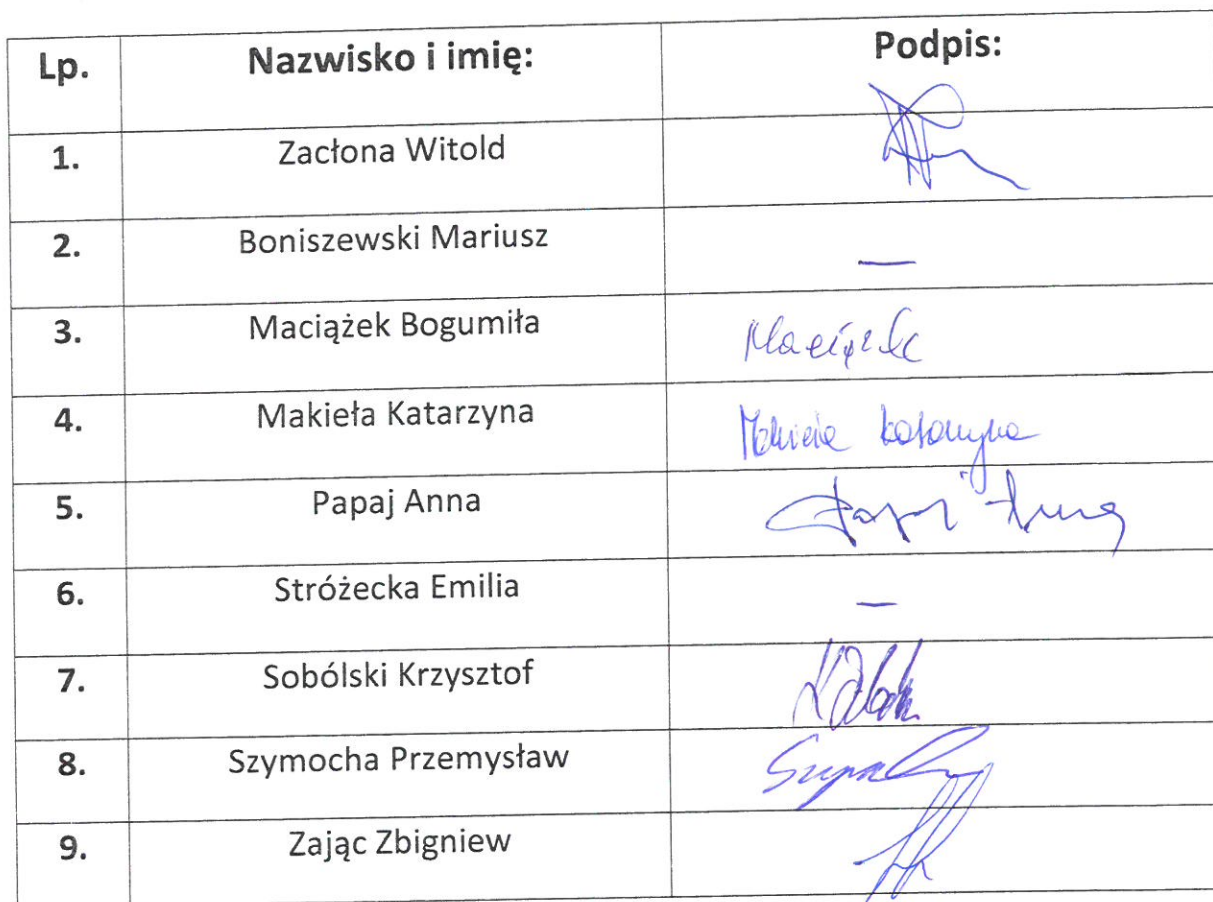 Lp. Nazwisko i imię: Podpis:
1. Zacłona Witold
2. Boniszewski Mariusz —
3. Maciążek Bogumiła Maciążek
4. Makieła Katarzyna Makieła Katarzyna
5. Papaj Anna Papaj Anna
6. Stróżecka Emilia —
7. Sobólski Krzysztof
8. Szymocha Przemysław
9. Zając Zbigniew